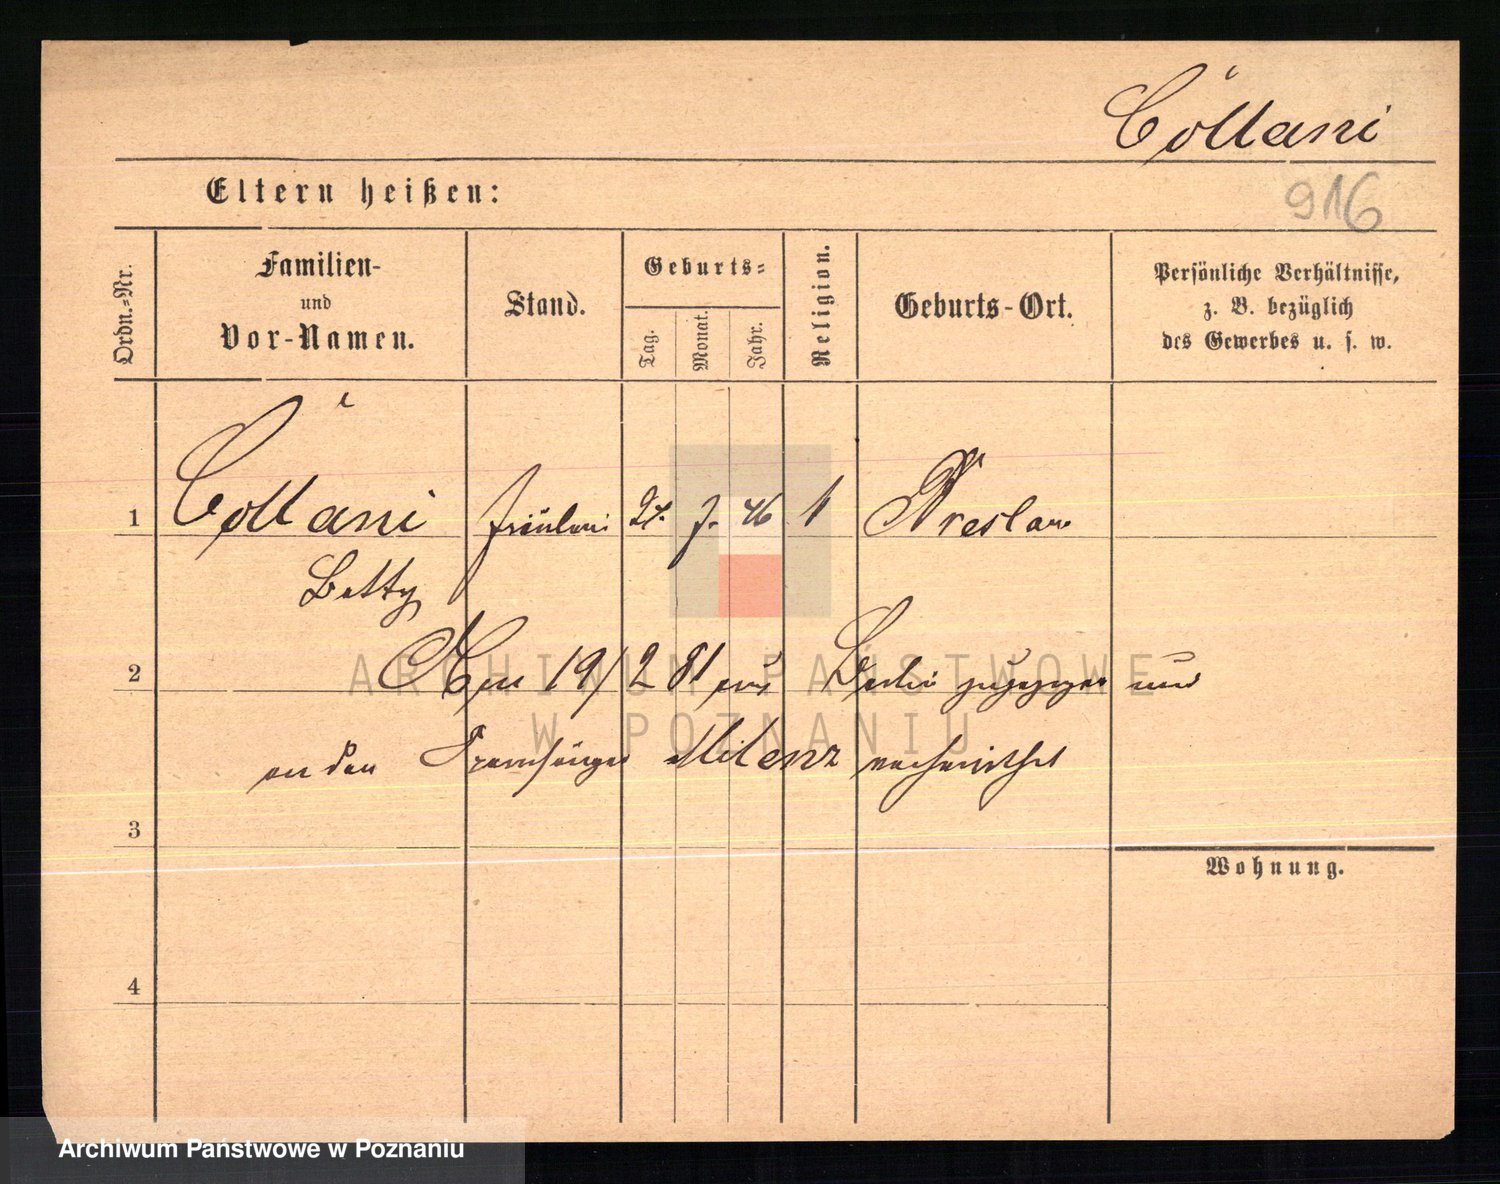 Cóllani
916
Eltern heißen:
Ordn.-Nr.
Familien-
und
Vor-Namen.
Stand.
Geburts-
Tag.
Monat.
Jahr.
Religion.
Geburts-Ort.
Persönliche Verhältnisse,
z. B. bezüglich
des Gewerbes u. s. w.
1 Cóllani Fräulein 24. 7. 46 Breslau
Betty
2 19/2 81 aus Berlin zugezogen und
an den Milenz verheirathet
3
Wohnung.
4
ARCHIWUM PAŃSTWOWE
W POZNANIU
Archiwum Państwowe w Poznaniu